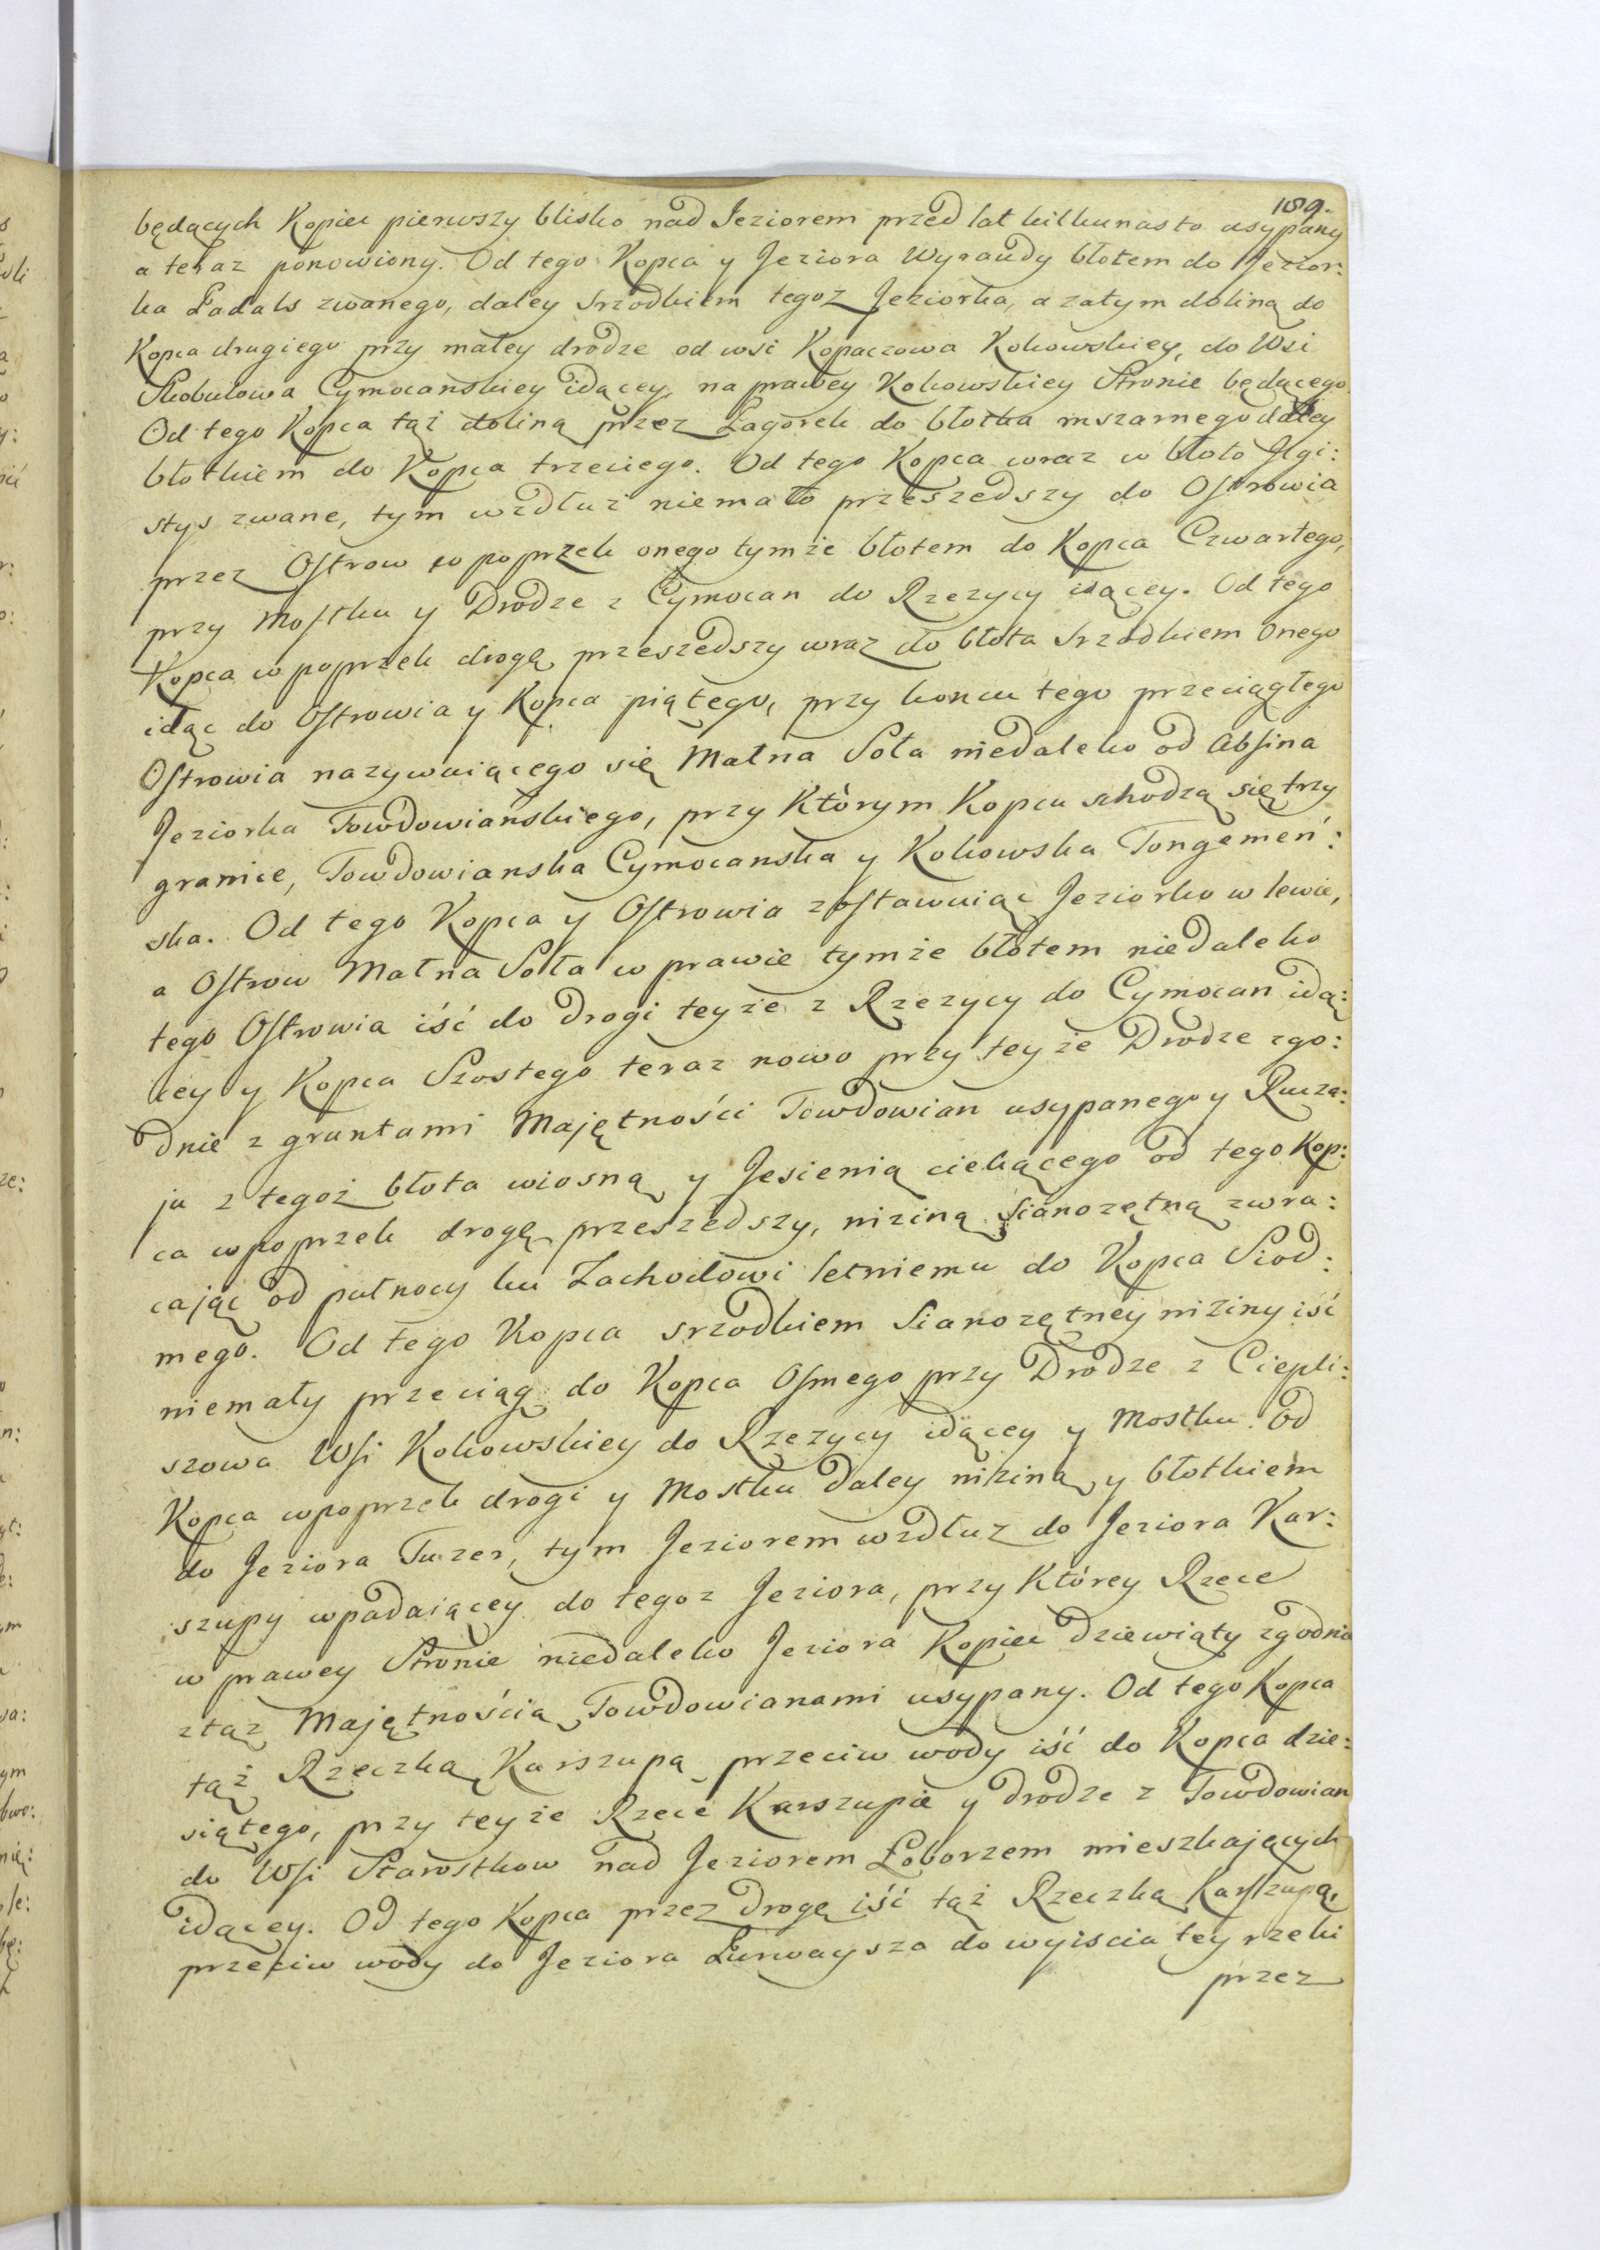 189.
będących Kopiec pierwszy blisko nad Jeziorem przed lat kilkunasto usypany
a teraz ponowiony. Od tego Kopca y Jeziora Wyraudy błotem do Jezior:
ka Ładals zwanego, daley srzodkiem tegoz Jeziorka, a zatym doliną do
Kopca drugiego przy małey drodze od wsi Kopaczowa Kokowskiey, do Wsi
Skobulowa Cymocanskiey idącey, na prawey Kokowskiey Stronie będącego
Od tego Kopca tąż doliną przez Zagorek do błotka mszarnego daley
błotkiem do Kopca trzeciego. Od tego Kopca wraz w błoto Jlgi:
stys zwane, tym wzdłuż niemało przeszedszy do Ostrowia
przez Ostrow w poprzek onego tymże błotem do Kopca Czwartego,
przy Mostku y Drodze z Cymocan do Rzezycy idącey. Od tego
Kopca w poprzek drogę przeszedszy wraz do błota srzodkiem onego
idąc do Ostrowia y Kopca piątego, przy koncu tego przeciągłego
Ostrowia nazywaiącego się Małna Soła niedaleko od Absina
Jeziorka Towdowiańskiego, przy Którym Kopcu schodzą się trzy
granice, Towdowianska Cymocanska y Kokowska Tongemeń:
ska. Od tego Kopca y Ostrowia zostawuiąc Jeziorko w lewie,
a Ostrow Małna Soła w prawie tymże błotem niedaleko
tego Ostrowia iść do Drogi teyże z Rzezycy do Cymocan idą:
cey y Kopca Szostego teraz nowo przy teyże Drodze zgo:
dnie z gruntami Majętności Towdowian usypanego y Rucza:
ju z tegoż błota wiosną y Jesienią ciekącego od tego Kop:
ca wpoprzek drogę przeszedszy, niziną Sianozętną zwra:
cając od pułnocy ku Zachodowi letniemu do Kopca Siod:
mego. Od tego Kopca srzodkiem Sianozętney niziny iść
niemały przeciąg do Kopca Osmego przy Drodze z Ciepli:
szowa Wsi Kokowskiey do Rzezycy idącey y Mostku. Od
Kopca wpoprzek drogi y Mostku daley niziną y błotkiem
do Jeziora Tuzer, tym Jeziorem wzdłuz do Jeziora Kar:
szupy wpadaiącey do tegoz Jeziora, przy Którey Rzece
w prawey Stronie niedaleko Jeziora Kopiec dziewiąty zgodnie
z tąz Majętnością Towdowianami usypany. Od tego Kopca
tąż Rzeczką Karszupą przeciw wody iść do Kopca dzie:
siątego, przy teyże Rzece Karszupie y drodze z Towdowian
do Wsi Starostkow nad Jeziorem Łoborzem mieszkających
idącey. Od tego Kopca przez drogę iść tąż Rzeczką Karszupą,
przeciw wody do Jeziora Łurwaysza do wyiscia tey rzeki
przez